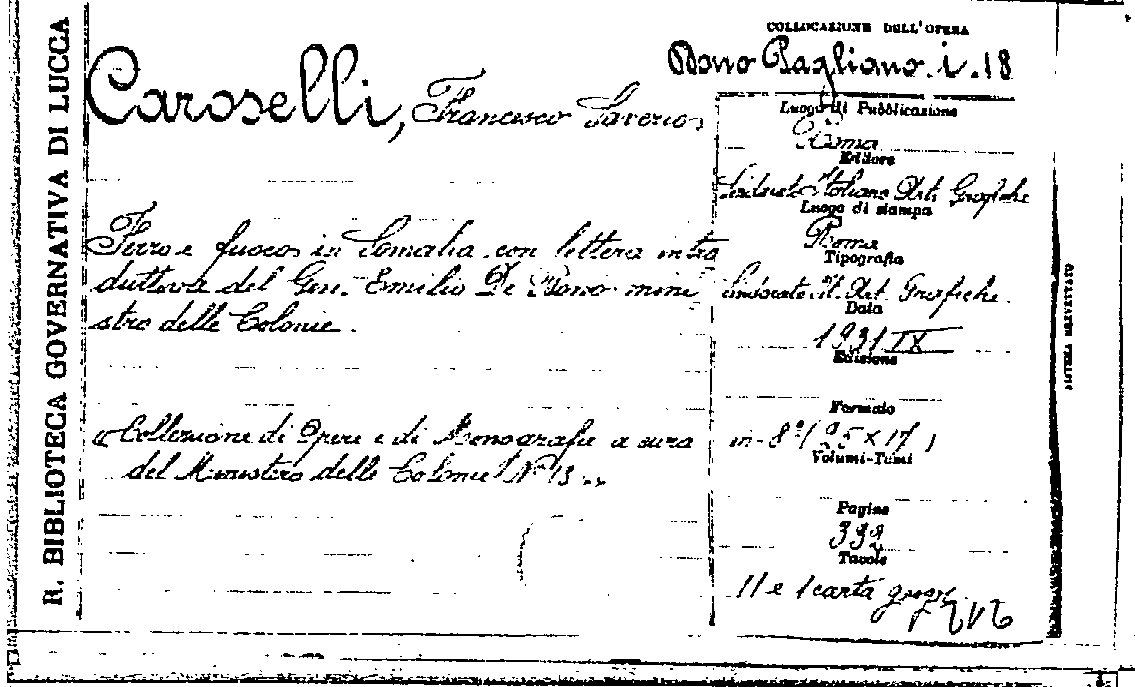 R. BIBLIOTECA GOVERNATIVA DI LUCCA
Caroselli, Francesco Saverio
Ferro e fuoco in Somalia con lettera intro
duttiva del Gen. Emilio De Bono mini
stro delle Colonie.
"Collezione di Opere e di Monografie a cura
del Ministero delle Colonie N° 13"
COLLOCAZIONE DELL'OPERA
Dono Pagliano. i. 18
Luogo di Pubblicazione
Roma
Editore
Sindacato Italiano Arti Grafiche
Luogo di stampa
Roma
Tipografia
Sindacato It. Art. Grafiche
Data
1931 IX
Edizione
Formato
in-8° (25 x 17)
Volumi-Tomi
Pagine
332
Tavole
11 e 1 carta geogr.